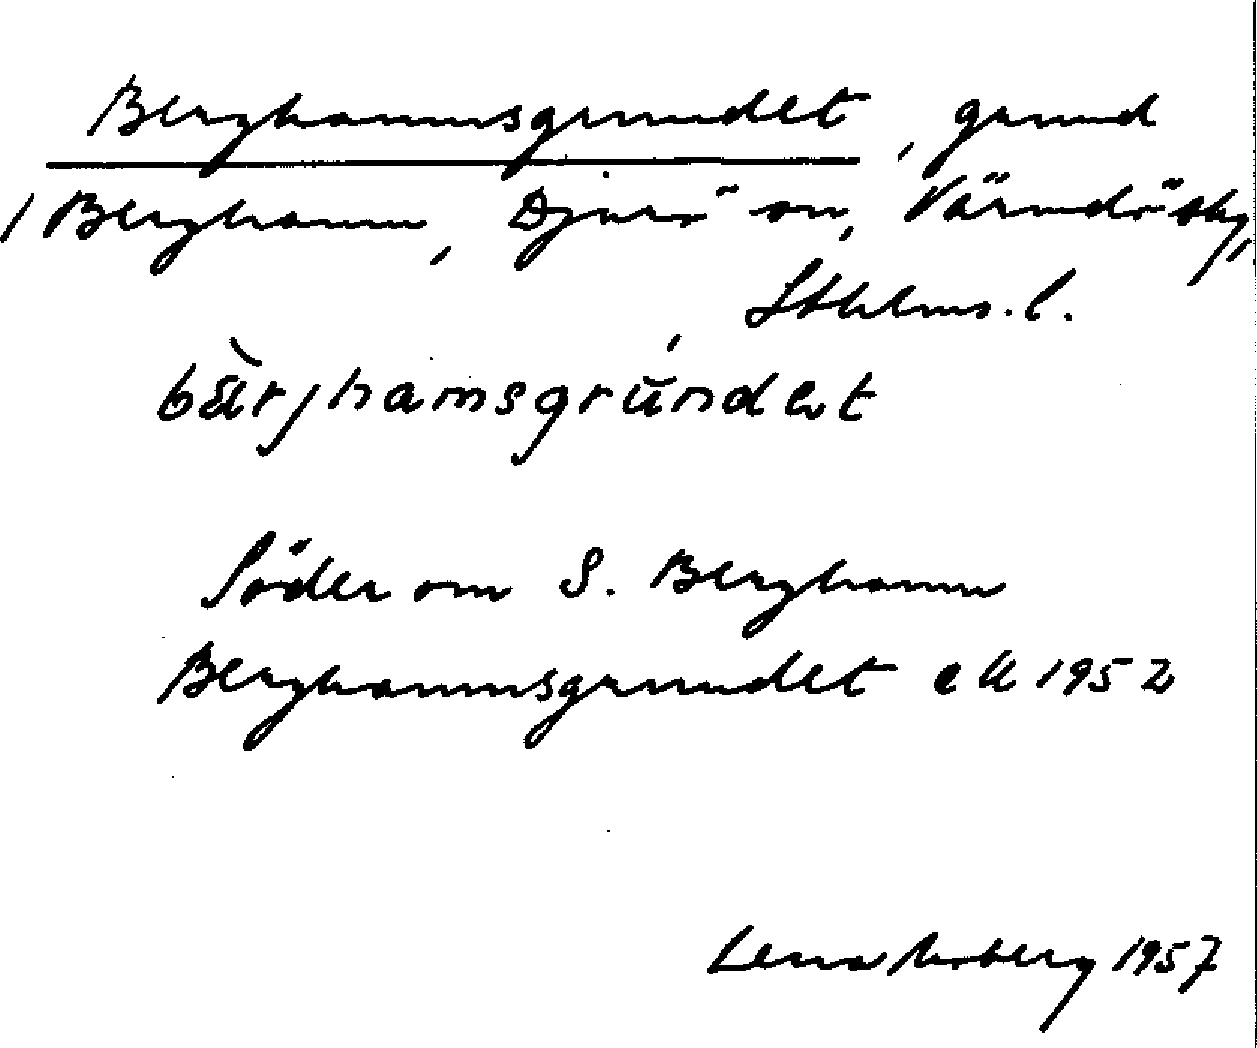 Berghamnsgrundet, grund
/ Berghamn, Djurö sn, Värmdö skg,
Sthlms. l.
bärjhamsgrúndet
Söder om S. Berghamn
Berghamnsgrundet ek 1952
Lena 1957